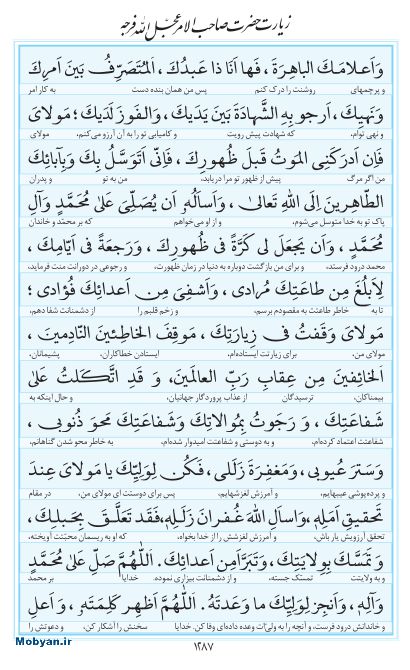 زیارت حضرت صاحب الامر عجل الله فرجه
وَاَعلامَكَ الباهِرَةَ ، فَها اَنَا ذا عَبدُكَ ، اَلمُتَصَرِّفُ بَينَ اَمرِكَ
و پرچمهای روشنت را درک کنم پس من همان بنده دست به کار امر
وَنَهيِكَ، اَرجو بِهِ الشَّهادَةَ بَينَ يَدَيكَ ، وَالفَوزَ لَدَيكَ ؛ مَولايَ
و نهی توام، که شهادت پیش رویت و کامیابی تو را به آن آرزو می‌کنم. مولای
فَاِن اَدرَكَنِى المَوتُ قَبلَ ظُهورِكَ ، فَاِنّى اَتَوَسَّلُ بِكَ وَبِآبائِكَ
من اگر مرگ پیش از ظهور تو مرا دریابد، من به تو و پدران
الطّاهِرينَ اِلَى اللهِ تَعالى ، وَاَسأَلُهُ اَن يُصَلِّىَ عَلى مُحَمَّدٍ وَآلِ
پاک تو به خدا متوسل می‌شوم، و از او می‌خواهم که بر محمّد و خاندان
مُحَمَّدٍ ، وَاَن يَجعَلَ لى كَرَّةً فى ظُهورِكَ ، وَرَجعَةً فى اَيّامِكَ ،
محمد درود فرستد، و برای من بازگشت دوباره به دنیا در زمان ظهورت، و رجوعی در دورانت منت فرماید،
لِاَبلُغَ مِن طاعَتِكَ مُرادى ، وَاَشفِىَ مِن اَعدائِكَ فُؤادى ؛
تا به خاطر طاعتت به مقصودم برسم، و زخم قلبم را از دشمنانت شفا دهم،
مَولايَ وَقَفتُ فى زِيارَتِكَ ، مَوقِفَ الخاطِئينَ النّادِمينَ ،
مولای من، برای زیارتت ایستاده‌ام، ایستادن خطاکاران، پشیمانان،
اَلخائِفينَ مِن عِقابِ رَبِّ العالَمينَ، وَ قَدِ اتَّكَلتُ عَلى
بیمناکان، ترسیدگان از عذاب پروردگار جهانیان، و حال اینکه به
شَفاعَتِكَ ، وَ رَجَوتُ بِمُوالاتِكَ وَشَفاعَتِكَ مَحوَ ذُنوبى ،
شفاعتت اعتماد کرده‌ام، و به دوستی و شفاعتت امیدوار شده‌ام، به خاطر محو شدن گناهانم،
وَسَترَ عُيوبى ، وَمَغفِرَةَ زَلَلى ، فَكُن لِوَلِيِّكَ يا مَولايَ عِندَ
و پرده‌پوشی عیبهایم، و آمرزش لغزشهایم، پس برای دوستت ای مولای من، در مقام
تَحقيقِ اَمَلِهِ، وَاسأَلِ اللهَ غُفرانَ زَلَلِهِ، فَقَد تَعَلَّقَ بِحَبلِكَ،
تحقق آرزویش یار باش، و آمرزش لغزشش را از خدا بخواه، که او به ریسمان محبّتت آویخته،
وَتَمَسَّكَ بِوِلايَتِكَ ، وَتَبَرَّاَ مِن اَعدائِكَ. اَللّهُمَّ صَلِّ عَلى مُحَمَّدٍ
و به ولایتت تمسّک جسته، و از دشمنانت بیزاری نموده. خدایا بر محمد
وَآلِهِ، وَاَنجِز لِوَلِيِّكَ ما وَعَدتَهُ. اَللّهُمَّ اَظهِر كَلِمَتَهُ ، وَاَعلِ
و خاندانش درود فرست، و آنچه را به ولی‌ات وعده داده‌ای وفا کن. خدایا سخنش را آشکار کن، و دعوتش را
۱۲۸۷
Mobyan.ir